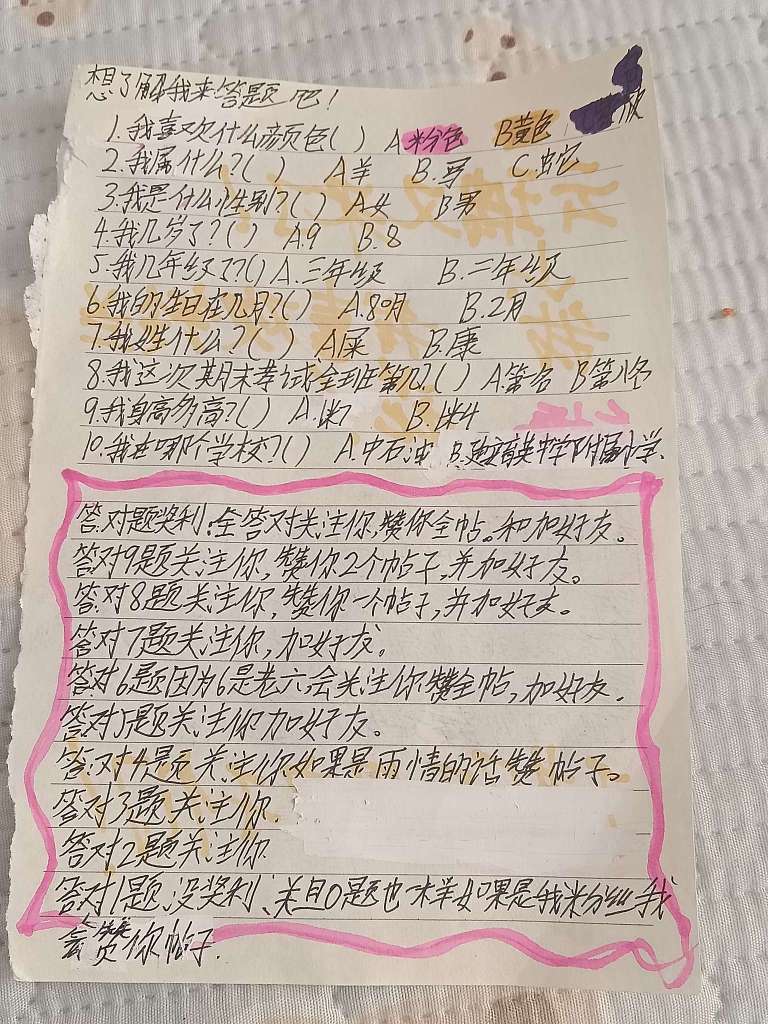 想了解我来答题吧!
1.我喜欢什么颜色( ) A粉色 B黄色
2.我属什么?( ) A羊 B.马 C.蛇
3.我是什么性别?( ) A女 B男
4.我几岁了?( ) A.9 B.8
5.我几年级了?( ) A.三年级 B.二年级
6.我的生日在几月?( ) A.8月 B.2月
7.我姓什么?( ) A屎 B.康
8.我这次期末考试全班第几?( ) A.第 B第
9.我身高多高?( ) A. B.
10.我在哪个学校?( ) A.中石油 B. 育英中学附属小学.
答对题奖利:全答对关注你,赞你全帖。和加好友。
答对9题关注你,赞你2个帖子,并加好友。
答对8题关注你,赞你一个帖子,并加好友。
答对7题关注你,加好友。
答对6题因为6是老六会关注你赞全帖,加好友.
答对5题关注你加好友。
答对4题关注你如果是雨情的话赞帖子。
答对3题关注你.
答对2题关注你.
答对1题没奖利、关且0题也一样如果是我粉丝我
会赞你帖子.